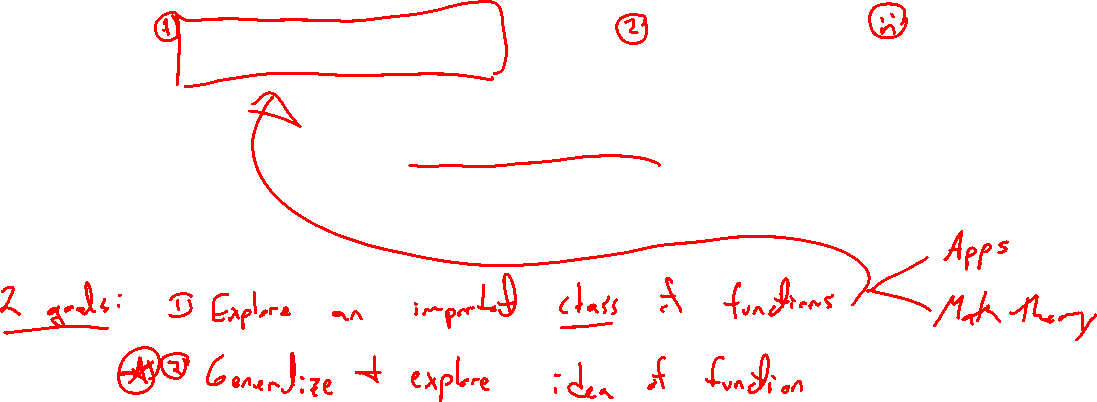 1 2 3
Apps
2 goals: 1) Explore an important class of functions
Math theory
2 Generalize + explore idea of function